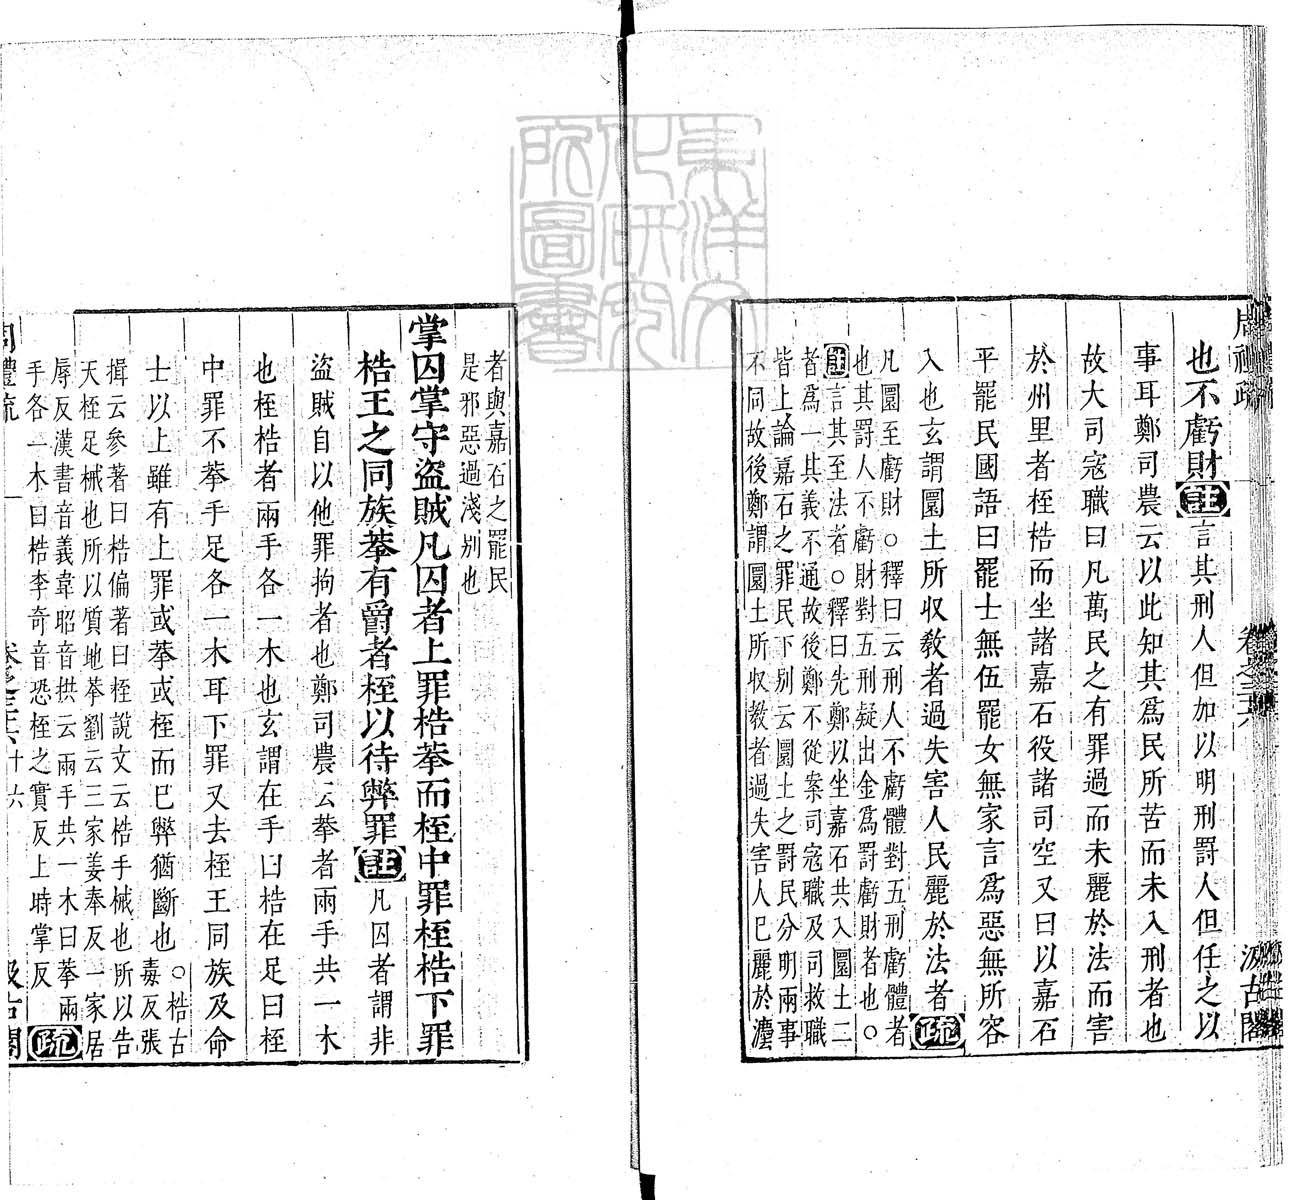 周禮疏 卷之三十六 汲古閣
也不虧財註言其刑人但加以明刑罰人但任之以
事耳鄭司農云以此知其爲民所苦而未入刑者也
故大司寇職曰凡萬民之有罪過而未麗於法而害
於州里者桎梏而坐諸嘉石役諸司空又曰以嘉石
平罷民國語曰罷士無伍罷女無家言爲惡無所容
入也玄謂圜土所收敎者過失害人民麗於法者疏
凡圜至虧財○釋曰云刑人不虧體對五刑虧體者
也其罰人不虧財對五刑疑出金爲罰虧財者也○
註言其至法者○釋曰先鄭以坐嘉石共入圜土二
者爲一其義不通故後鄭不從案司寇職及司救職
皆上論嘉石之罪民下别云圜土之罰民分明兩事
不同故後鄭謂圜土所收教者過失害人已麗於灋
者與嘉石之罷民
是邪惡過淺别也
掌囚掌守盜賊凡囚者上罪梏拲而桎中罪桎梏下罪
梏王之同族拲有爵者桎以待弊罪註凡囚者謂非
盜賊自以他罪拘者也鄭司農云拲者兩手共一木
也桎梏者兩手各一木也玄謂在手曰梏在足曰桎
中罪不拲手足各一木耳下罪又去桎王同族及命
士以上雖有上罪或拲或桎而已弊猶斷也○梏古
毒反張
揖云參著曰梏偏著曰桎說文云梏手械也所以告
天桎足械也所以質地拲劉云三家姜奉反一家居
辱反漢書音義韋昭音拱云兩手共一木曰拲兩
手各一木曰梏李奇音恐桎之實反上時掌反疏
周禮疏 卷之三十六 十六 汲古閣
東洋文化研究所圖書